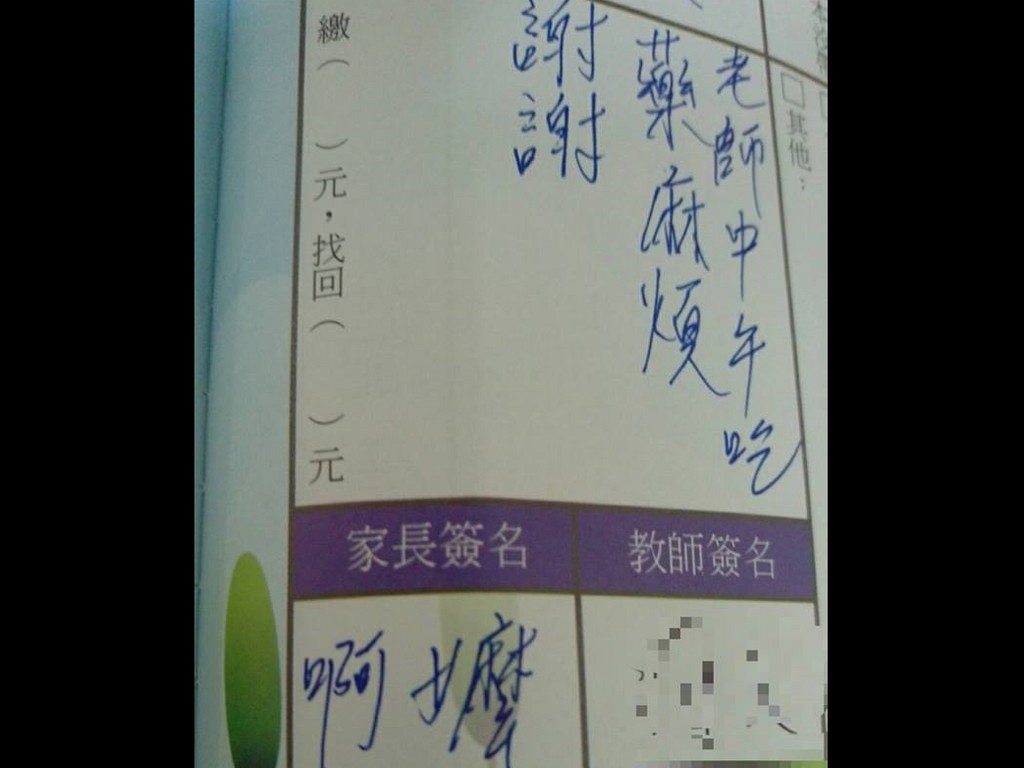 其他：
老師中午吃
藥麻煩
謝謝
繳（　）元，找回（　）元
教師簽名
家長簽名
啊嬤